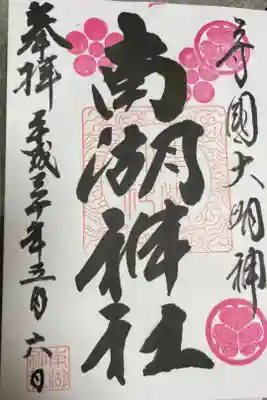 守國大明神
南湖神社
奉拝
平成三十年五月六日